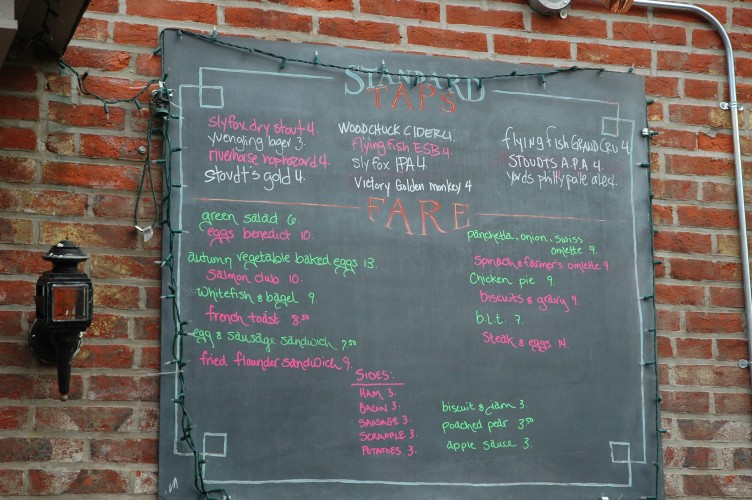 STANDARD
TAPS
slyfox dry stout 4.
yuengling lager 3.
riverhorse hop hazard 4.
stoudt's gold 4.
WOODCHUCK CIDER 4.
flying fish ESB 4.
sly fox IPA 4
Victory Golden monkey 4
flying fish GRAND CRU 4
STOUDTS A.P.A 4.
yards philly pale ale 4.
FARE
green salad 6.
eggs benedict 10.
autumn vegetable baked eggs 13.
salmon club 10.
whitefish & bagel 9.
french toast 8.50
egg & sausage sandwich 7.50
fried flounder sandwich 9.
panchetta, onion, swiss
omlette 9.
spinach & farmer's omlette 9.
chicken pie 9.
biscuits & gravy 9.
b.l.t. 7.
steak & eggs 14.
SIDES:
HAM 3.
BACON 3.
SAUSAGE 3.
SCRAPPLE 3.
POTATOES 3.
biscuit & jam 3.
poached pear 3.50
apple sauce 3.